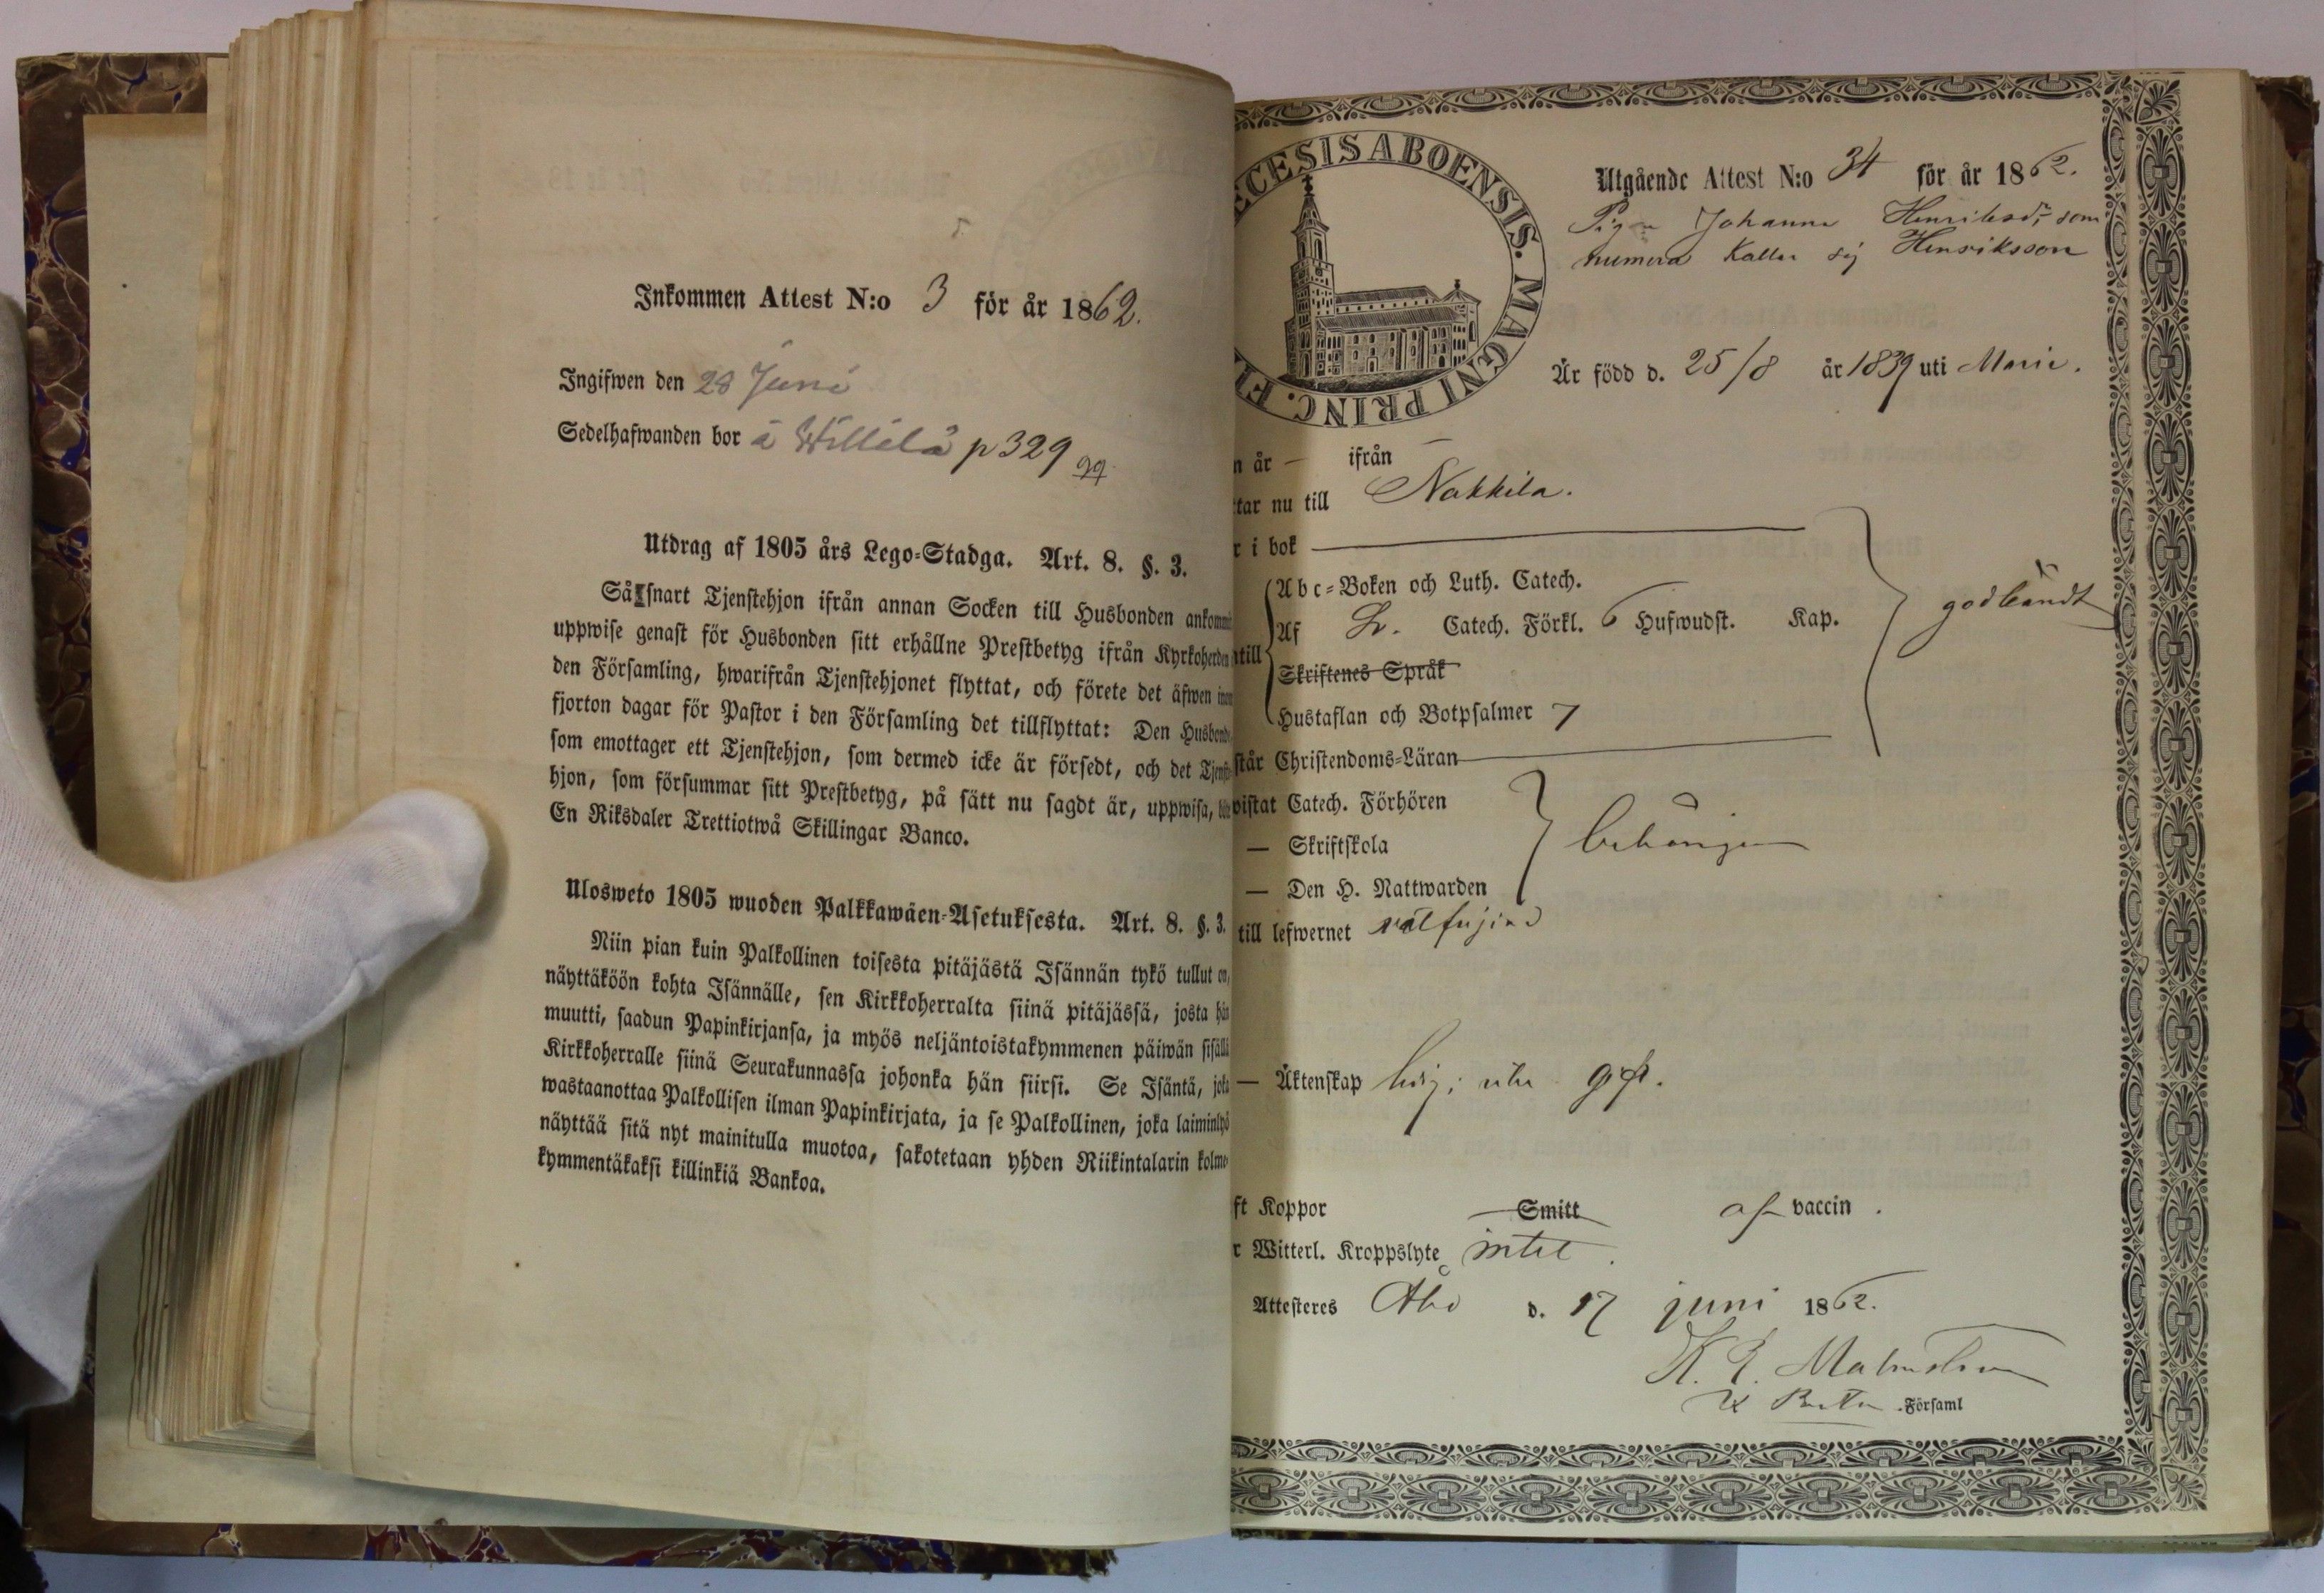 Inkommen Attest N:o 3 för år 1862.
Ingifwen den 28 Juni
Sedelhafwanden bor å Willilä p 329
Utdrag af 1805 års Lego-Stadga. Art. 8. §. 3.
Så snart Tjenstehjon ifrån annan Socken till Husbonden ankommit
uppwise genast för Husbonden sitt erhållne Prestbetyg ifrån Kyrkoherden
den Församling, hwarifrån Tjenstehjonet flyttat, och förete det äfwen inom
fjorton dagar för Pastor i den Församling det tillflyttat: Den Husbonde
som emottager ett Tjenstehjon, som dermed icke är försedt, och det Tjenste-
hjon, som försummar sitt Prestbetyg, på sätt nu sagdt är, uppwisa,
En Riksdaler Trettiotwå Skillingar Banco.
Ulosweto 1805 wuoden Palkkawäen-Asetuksesta. Art. 8. §. 3.
Niin pian kuin Palkollinen toisesta pitäjästä Isännän tykö tullut on,
näyttäköön kohta Isännälle, sen Kirkkoherralta siinä pitäjässä, josta hän
muutti, saadun Papinkirjansa, ja myös neljäntoistakymmenen päiwän sisällä
Kirkkoherralle siinä Seurakunnassa johonka hän siirsi. Se Isäntä, joka
wastaanottaa Palkollisen ilman Papinkirjata, ja se Palkollinen, joka laiminlyö
näyttää sitä nyt mainitulla muotoa, sakotetaan yhden Riikintalarin kolme-
kymmentäkaksi killinkiä Bankoa.
ECESIS ABOENSIS. MAGNI PRINC. FI
Utgående Attest N:o 34 för år 1862.
Pigan Johanna Henriksdr, som
numera kallar sig Henriksson
Är född d. 25/8 år 1839 uti Marie.
n år — ifrån
tar nu till Nakkila.
r i bok
Abc-Boken och Luth. Catech.
till Af Sv. Catech. Förkl. 6 Hufwudst. Kap. godkändt
Skriftenes Språk
Hustaflan och Botpsalmer 7
står Christendoms-Läran
wistat Catech. Förhören
— Skriftskola behörigen
— Den H. Nattwarden
till lefwernet välfrejdad
— Äktenskap ledig; icke gift.
ft Koppor Smitt af vaccin.
r Witterl. Kroppslyte intet.
Attesteres Åbo d. 17 juni 1862.
K. E. Malmström
Församl